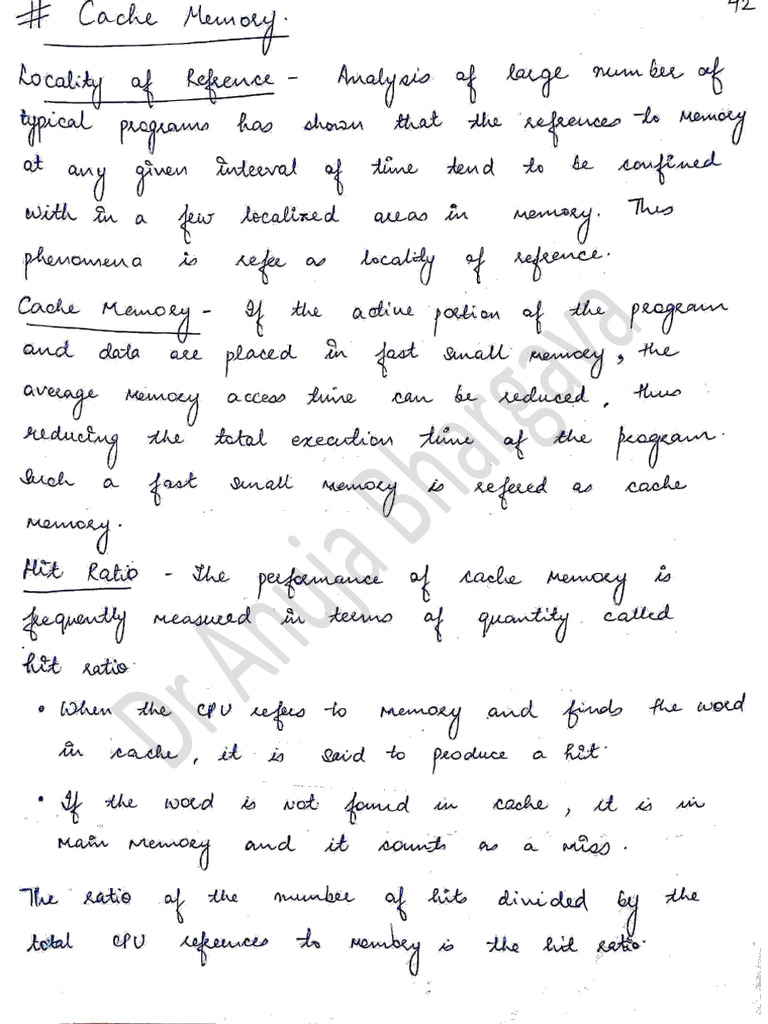 42
# Cache Memory.
Locality of Refrence - Analysis of large number of
typical programs has shown that the refrences to memory
at any given interval of time tend to be confined
with in a few localized areas in memory. This
phenomena is refer as locality of refrence.
Cache Memory - If the active portion of the program
and data are placed in fast small memory, the
average memory access time can be reduced, thus
reducing the total execution time of the program.
Such a fast small memory is refered as cache
memory.
Hit Ratio - The performance of cache memory is
frequently measured in terms of quantity called
hit ratio.
• When the CPU refers to memory and finds the word
in cache, it is said to produce a hit.
• If the word is not found in cache, it is in
main memory and it counts as a miss.
The ratio of the number of hits divided by the
total CPU refrences to membry is the hit ratio.
Dr Anuja Bhargava